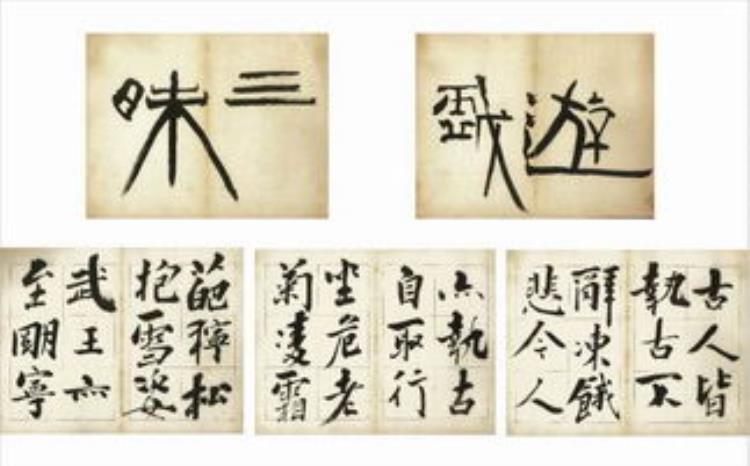 遊戲
三昧
古人皆
執古不
辭凍餓
悲今人
亦執古
自取行
坐危老
菊凌霜
葩稺松
抱雪姿
武王亦
至朙寧